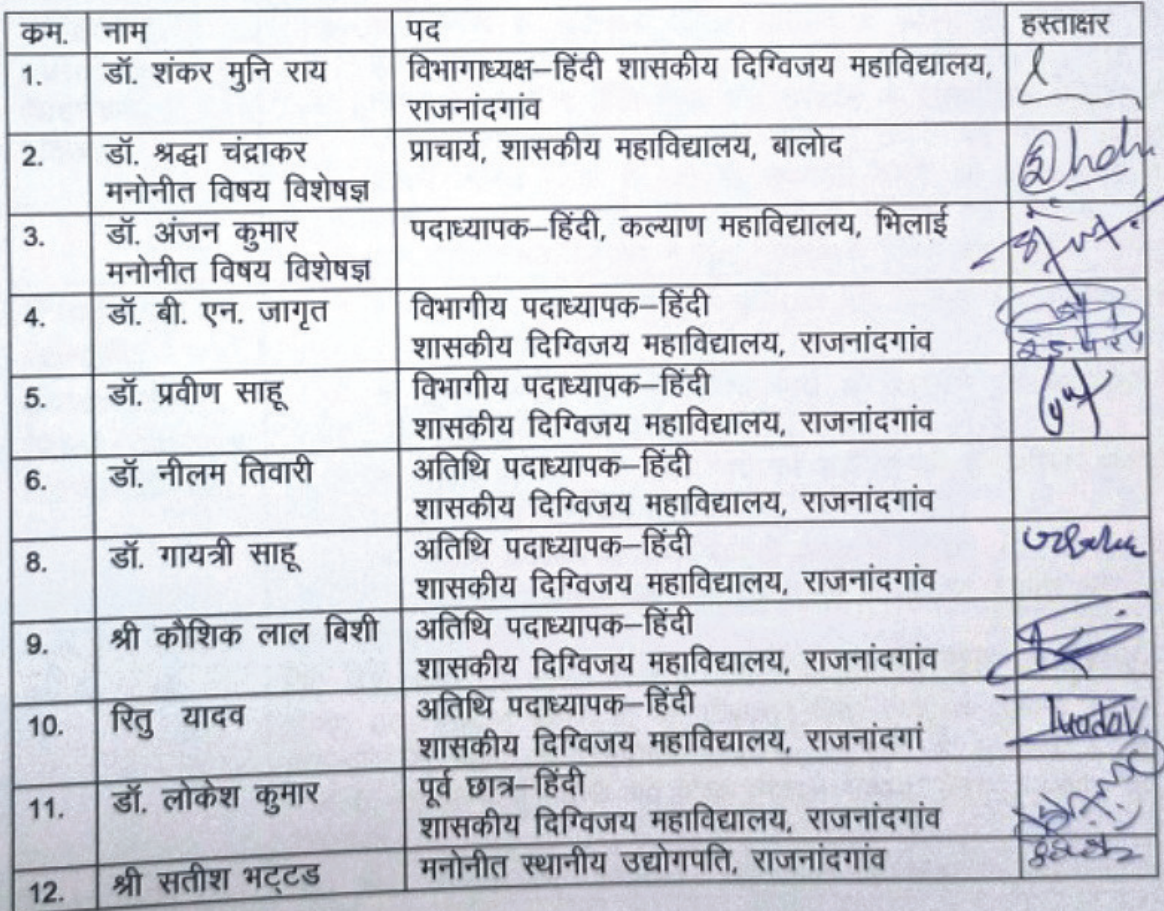 कम. नाम पद हस्ताक्षर
1. डॉ. शंकर मुनि राय विभागाध्यक्ष–हिंदी शासकीय दिग्विजय महाविद्यालय,
राजनांदगांव
2. डॉ. श्रद्धा चंद्राकर प्राचार्य, शासकीय महाविद्यालय, बालोद
मनोनीत विषय विशेषज्ञ
3. डॉ. अंजन कुमार पदाध्यापक–हिंदी, कल्याण महाविद्यालय, भिलाई
मनोनीत विषय विशेषज्ञ
4. डॉ. बी. एन. जागृत विभागीय पदाध्यापक–हिंदी
शासकीय दिग्विजय महाविद्यालय, राजनांदगांव
5. डॉ. प्रवीण साहू विभागीय पदाध्यापक–हिंदी
शासकीय दिग्विजय महाविद्यालय, राजनांदगांव
6. डॉ. नीलम तिवारी अतिथि पदाध्यापक–हिंदी
शासकीय दिग्विजय महाविद्यालय, राजनांदगांव
8. डॉ. गायत्री साहू अतिथि पदाध्यापक–हिंदी
शासकीय दिग्विजय महाविद्यालय, राजनांदगांव
9. श्री कौशिक लाल बिशी अतिथि पदाध्यापक–हिंदी
शासकीय दिग्विजय महाविद्यालय, राजनांदगांव
10. रितु यादव अतिथि पदाध्यापक–हिंदी
शासकीय दिग्विजय महाविद्यालय, राजनांदगां
11. डॉ. लोकेश कुमार पूर्व छात्र–हिंदी
शासकीय दिग्विजय महाविद्यालय, राजनांदगांव
12. श्री सतीश भट्टड मनोनीत स्थानीय उद्योगपति, राजनांदगांव